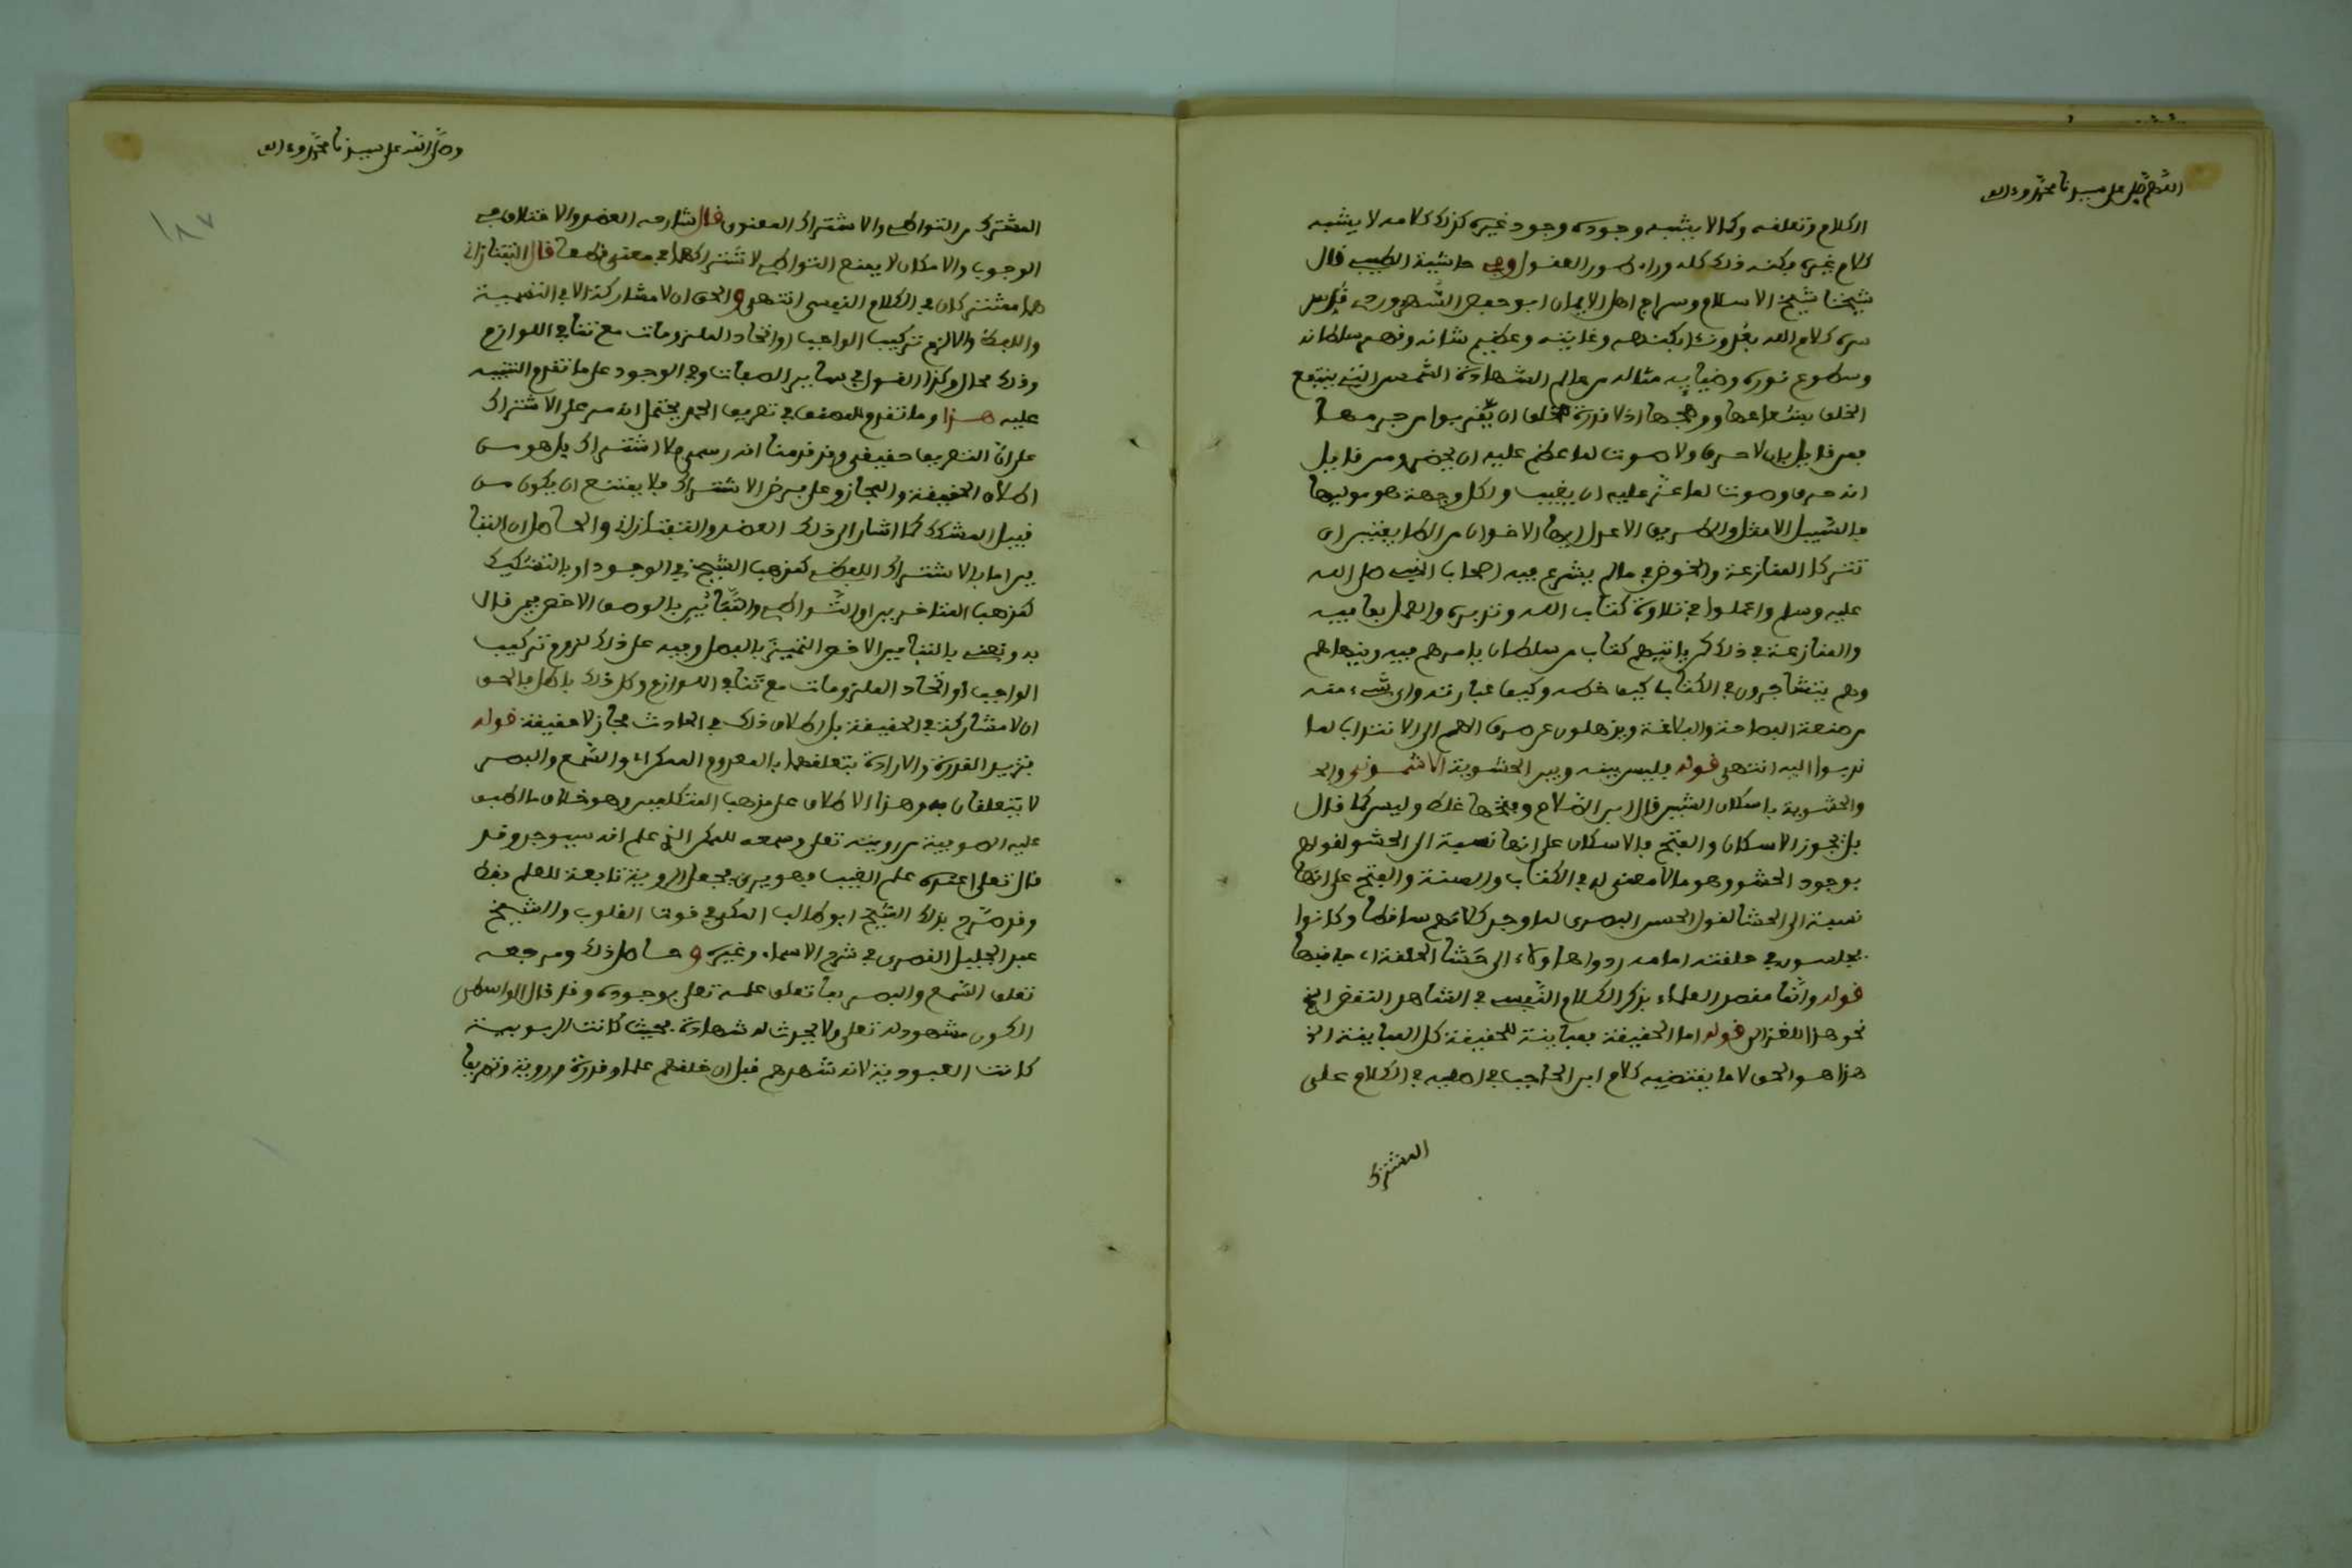 اللهم صل على سيدنا محمد وءاله
الكلام وتعلقه وكما لا يشبه وجوده وجود غيره كذلك كلامه لا يشبه
كلام غيره فكنه ذلك كله وراء طور العقول وفي حاشية الطيبي قال
شيخنا شيخ الاسلام وسراج اهل الايمان ابو حفص السهروردي قدس
سره كلام الله بعد وناء بكنهه وغايته وعظيم شانه وقهر سلطانه
وسطوع نوره وضيايه مثاله من عالم الشهادة الشمس التي ينتفع
الخلق بشعاعها ووهجها اذ لا قدرة للخلق ان يقربوا من جرمها
فمن قايل بان لا حرف ولا صوت لما عظم عليه ان يحضر ومن قايل
انه حرف وصوت لما عز عليه ان يغيب ولكل وجهة هو موليها
فالسبيل الامثل والطريق الاعدل ايها الاخوان من الطايفتين ان
تتركا المنازعة والخوض في ما لم يشرع فيه اصحاب النبي صلى الله
عليه وسلم واعملوا في تلاوة كتاب الله وتدبره والعمل بما فيه
والمنازعة في ذلك كمن ياتيهم كتاب من سلطان يامرهم فيه وينهاهم
وهم يتشاجرون في الكتاب كيف خطه وكيف عبارته واي شيء فيه
من صنعة الفصاحة والبلاغة ويذهلون عن صرف الهمم الى الانتداب لما
ندبوا اليه انتهى قوله فليس بينه وبين الحشوية الاشموني والحـ
والحشوية باسكان الشين قال ابن الصلاح وفتحها غلط وليس كما قال
بل يجوز الاسكان والفتح فالاسكان على انها نسبة الى الحشو لقولهم
بوجود الحشو وهو ما لا معنى له في الكتاب والسنة والفتح على انها
نسبة الى الحشا لقول الحسن البصري لما وجد كلامهم ساقطا وكانوا
يجلسون في حلقته امامه ردوا هاولاء الى حشا الحلقة اي جانبها
قوله وانما مقصد العلماء بذكر الكلام النفسي في الشاهد النقض الخ
نحو هذا للغزالي قوله اما الحقيقة فمباينة للحقيقة كل المباينة الخ
هذا هو الحق لا ما يقتضيه كلام ابن الحاجب في اصليه في الكلام على
المشترك
وصلى الله على سيدنا محمد وءاله
١٨٧
المشترك من التواطي والاشتراك المعنوي قال شارحه العضد والاختلاف في
الوجوب والامكان لا يمنع التواطي لاشتراكهما في معنى قطعا قال التفتازاني
هما مشتركان في الكلام النفسي انتهى والحق ان لا مشاركة الا في التسمية
واللفظ والا لزم تركيب الواجب او اتحاد الملزومات مع تنافي اللوازم
وذلك محال وكذا القول في ساير الصفات وفي الوجود على ما تقدم التنبيه
عليه هذا وما تقدم للمصنف في تعريف الحمد يحتمل انه مر على الاشتراك
على ان التعريف حقيقي وقد قدمنا انه رسمي ولا اشتراك بل هو من
اطلاق الحقيقة والمجاز وعلى فرض الاشتراك فلا يمتنع ان يكون من
قبيل المشكك كما اشار الى ذلك العضد والتفتازاني والحاصل ان التبا
ين اما بالاشتراك اللفظي كمذهب الشيخ في الوجود او بالتشكيك
كمذهب المتاخرين او التواطي والتمايز بالوصف الاخص فمن قال
به ونعني بالتمايز الاخص التميز بالفصل وفيه على ذلك لزوم تركيب
الواجب او اتحاد الملزومات مع تنافي اللوازم وكل ذلك باطل فالحق
ان لا مشاركة في الحقيقة بل اطلاق ذلك في الحادث مجاز لا حقيقة قوله
بتزييد القدرة والارادة بتعلقهما بالمعدوم الممكن اء والسمع والبصر
لا يتعلقان به وهذا الاطلاق على مذهب المتكلمين وهو خلاف ما اطبق
عليه الصوفية من رويته تعلى وسمعه للممكن الذي علم انه سيوجد وقد
قال تعلى اعنده علم الغيب فهو يرى فجعل الروية تابعة للعلم فقط
وقد صرح بذلك الشيخ ابو طالب المكي في قوت القلوب والشيخ
عبد الجليل القصري في شرح الاسماء وغيره وحاصل ذلك ومرجعه
تعلق السمع والبصر بما تعلق علمه تعلى بوجوده وقد قال الواسطي
الكون مشهود له تعلى ولا يحدث له شهادة فحيث كانت الربوبية
كانت العبودية لانه شهدهم قبل ان خلقهم علما وقدرة وروية وتصريفا